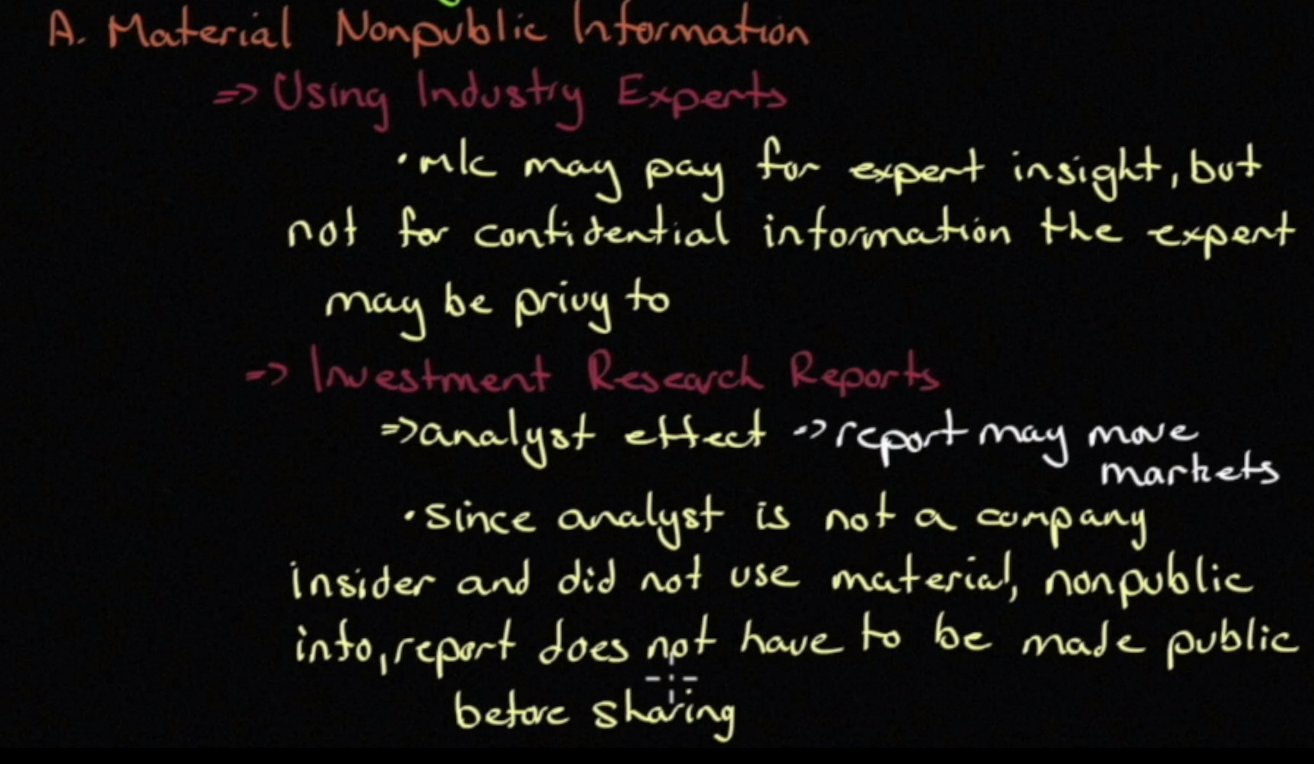 A. Material Nonpublic Information
=> Using Industry Experts
• m/c may pay for expert insight, but
not for confidential information the expert
may be privy to
=> Investment Research Reports
=> analyst effect -> report may move
markets
• since analyst is not a company
insider and did not use material, nonpublic
info, report does not have to be made public
before sharing